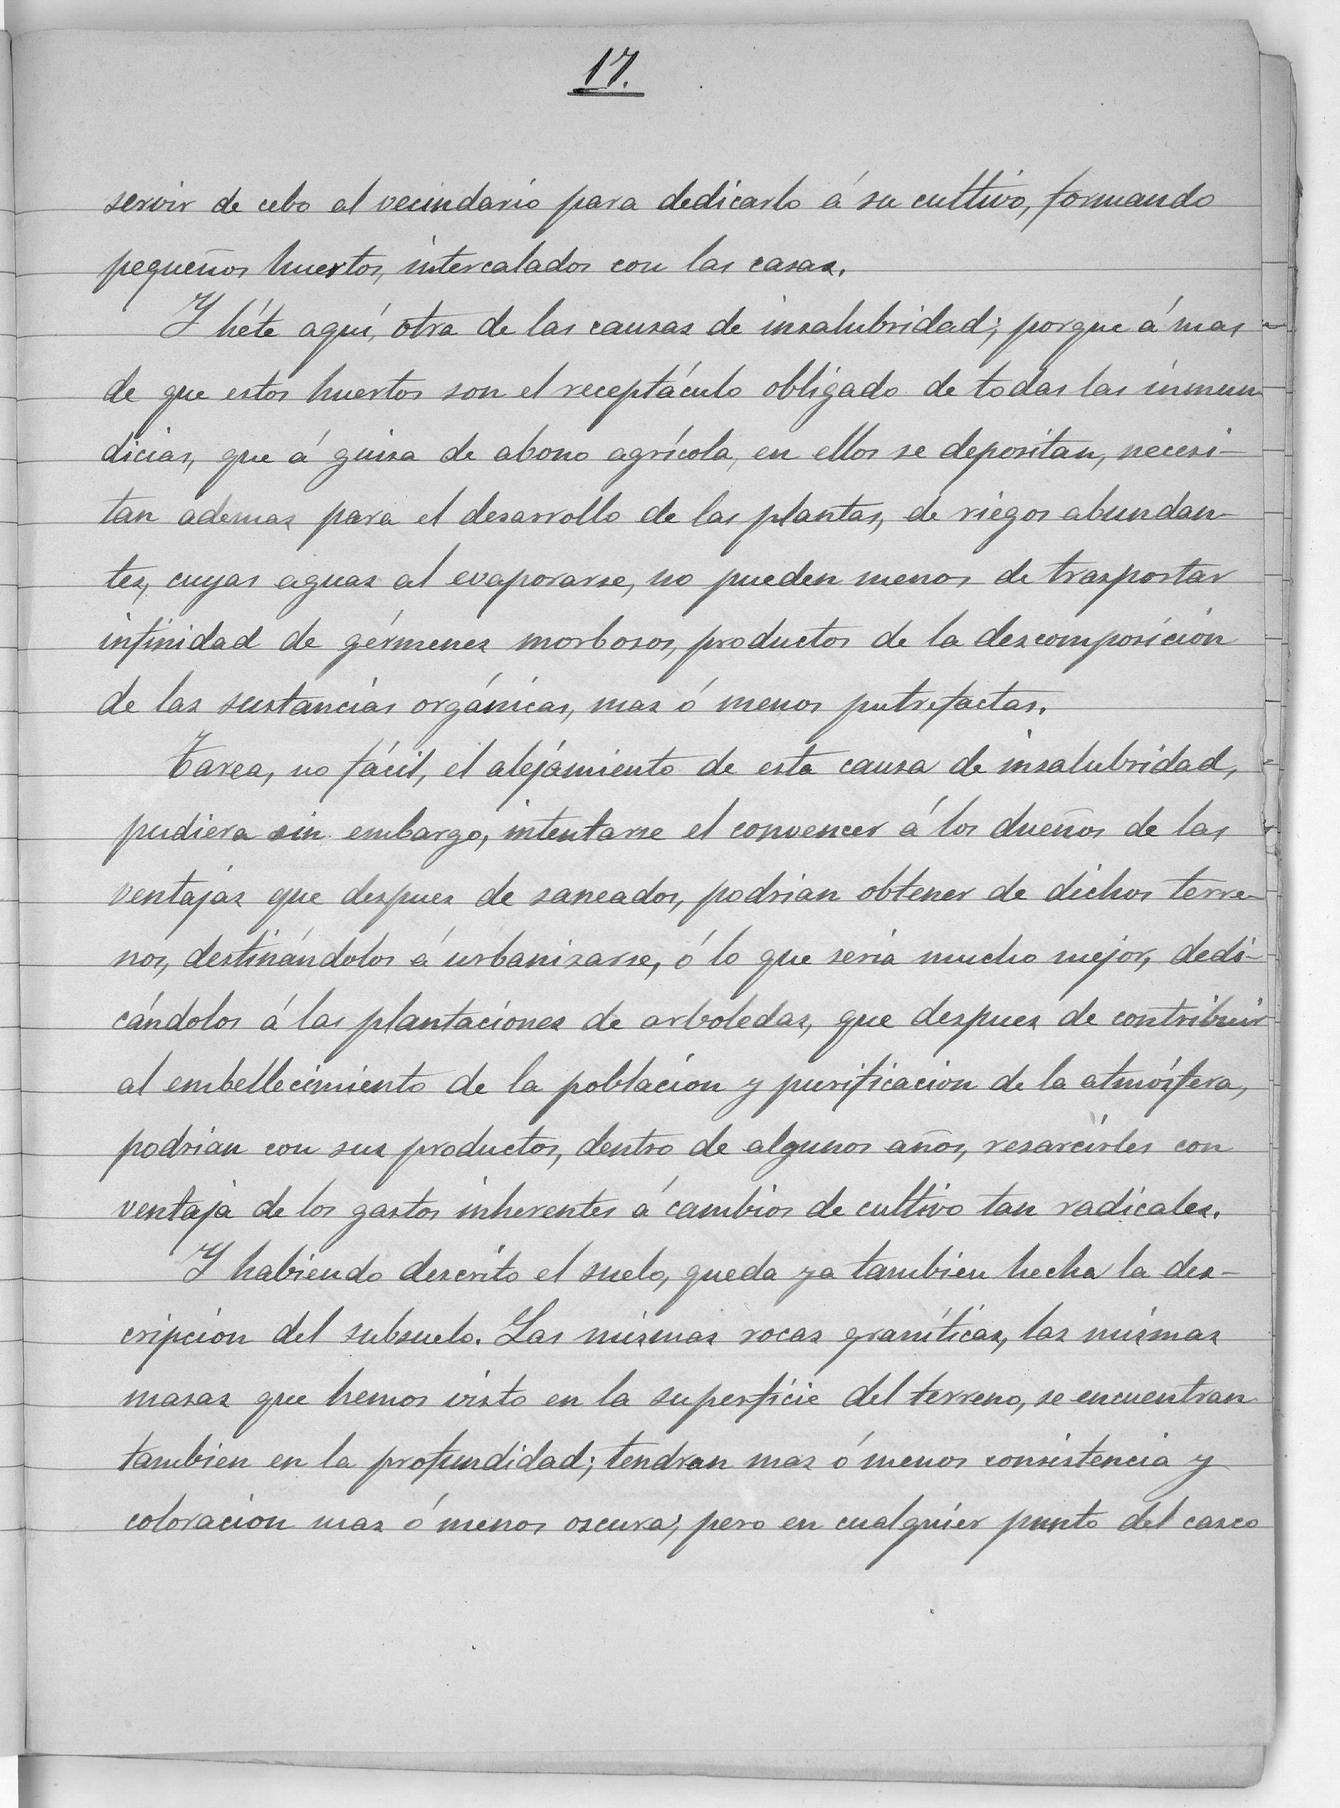 17.
servir de cebo al vecindario para dedicarlo á su cultivo, formando
pequeños huertos, intercalados con las casas.
Y héte aquí, otra de las causas de insalubridad; porque á mas
de que estos huertos son el receptáculo obligado de todas las inmun
dicias, que á guisa de abono agrícola, en ellos se depositan, necesi-
tan ademas para el desarrollo de las plantas, de riegos abundan-
tes, cuyas aguas al evaporarse, no pueden menos de trasportar
infinidad de gérmenes morbosos, productos de la descomposicion
de las sustancias orgánicas, mas ó menos putrefactas.
Tarea, no fácil, el alejamiento de esta causa de insalubridad,
pudiera sin embargo, intentarse el convencer á los dueños de las
ventajas que despues de saneados, podrian obtener de dichos terre-
nos, destinándolos á urbanizarse, ó lo que seria mucho mejor, dedi-
cándolos á las plantaciones de arboledas, que despues de contribuir
al embellecimiento de la poblacion y purificacion de la atmósfera,
podrian con sus productos, dentro de algunos años, resarcirles con
ventaja de los gastos inherentes á cambios de cultivo tan radicales.
Y habiendo descrito el suelo, queda ya tambien hecha la des-
cripcion del subsuelo. Las mismas rocas graníticas, las mismas
masas que hemos visto en la superficie del terreno, se encuentran
tambien en la profundidad; tendran mas ó menos consistencia y
coloracion mas ó menos oscura; pero en cualquier punto del casco